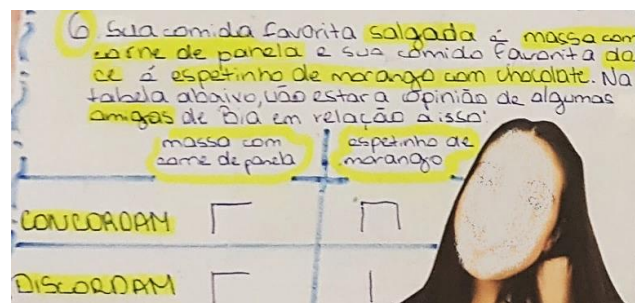 6 Sua comida favorita salgada é massa com
carne de panela e sua comida favorita do
ce é espetinho de morango com chocolate. Na
tabela abaixo, vão estar a opinião de algumas
amigas de Bia em relação a isso:
massa com espetinho de
carne de panela morango
CONCORDAM
DISCORDAM